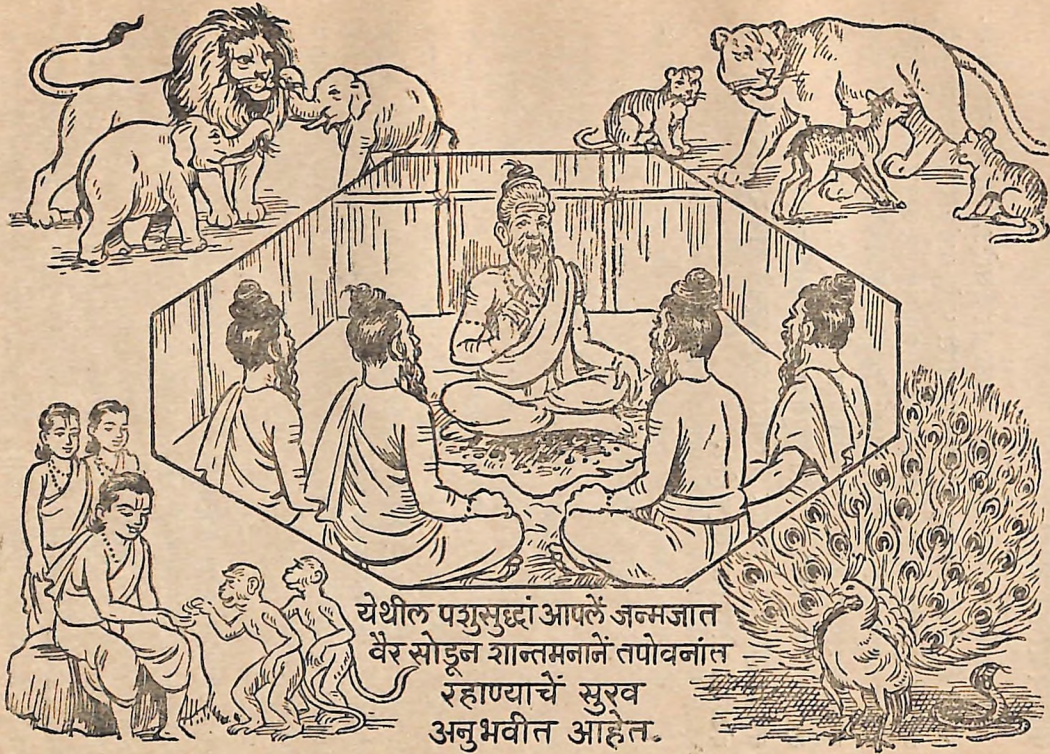 येथील पशुसुद्धां आपलें जन्मजात
वैर सोडून शान्तमनानें तपोवनांत
रहाण्याचें सुख
अनुभवीत आहेत.